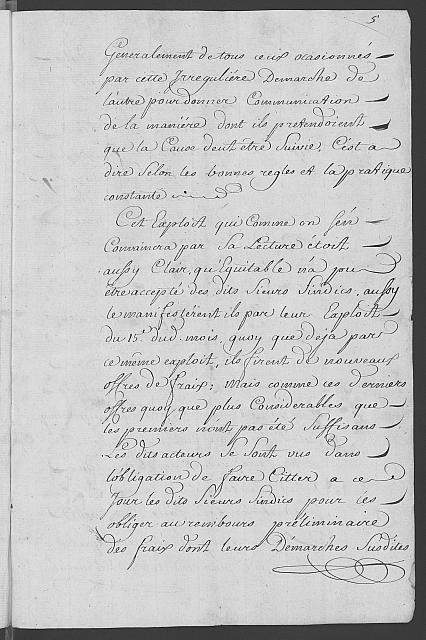 5
Generalement de tous ceux ocasionnés
par cette Irreguliére Demarche de
l'autre pour donner Communication
de la maniére dont ils pretendoient
que la Cause deut être Suivie, C'est a
dire Selon les bonnes regles et la pratique
constante
Cet Exploit qui Comme on s'en
Convaincra par Sa Lecture étoit
aussy Clair, qu'Equitable n'a pu
être accepté des dits Sieurs Sindics, aussy
le manifesterent ils par leur Exploit
du 15.e dud. mois, quoy que deja par
ce même exploit, ils firent de nouveaux
offres de fraix; Mais comme ces derniers
offres quoy que plus Considerables que
les premiers n'ont pas été Suffisans
Les dits acteurs Se Sont vus dans
l'obligation de faire Citter a ce
Jour les dits Sieurs Sindics pour les
obliger au rembours préliminaire
des fraix dont leurs Démarches Susdites